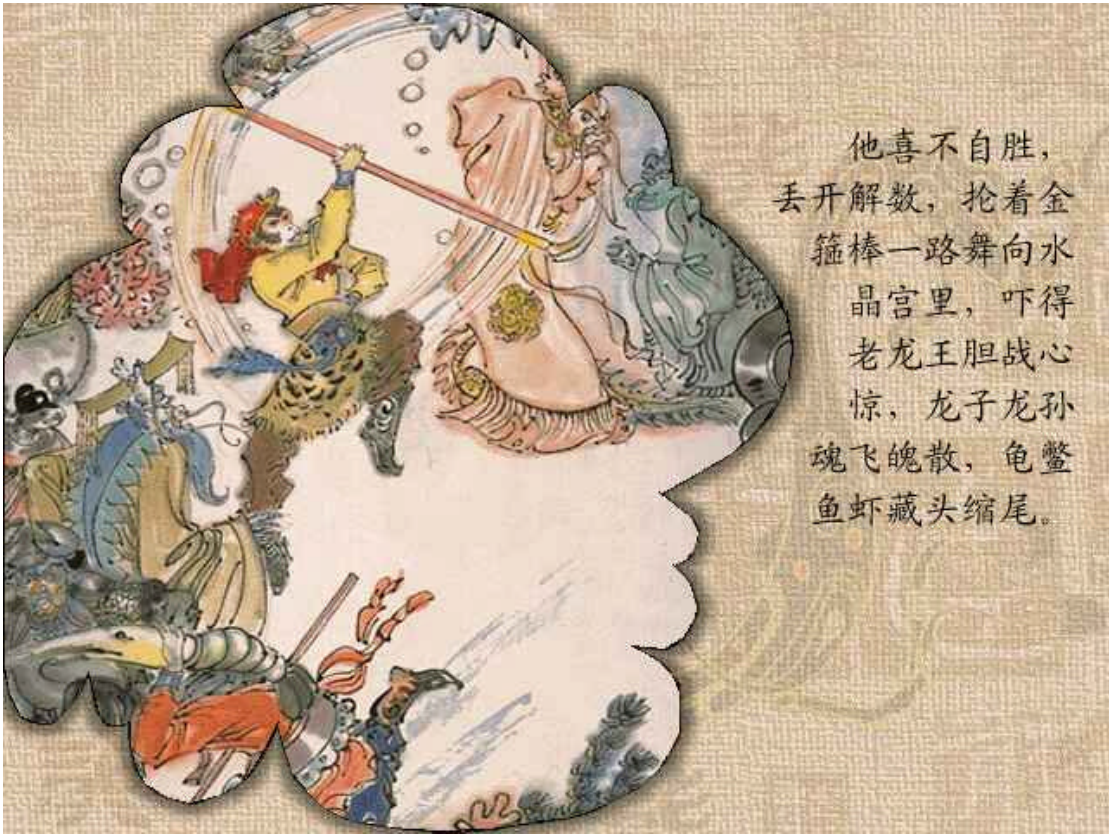 他喜不自胜，
丢开解数，抡着金
箍棒一路舞向水
晶宫里，吓得
老龙王胆战心
惊，龙子龙孙
魂飞魄散，龟鳖
鱼虾藏头缩尾。